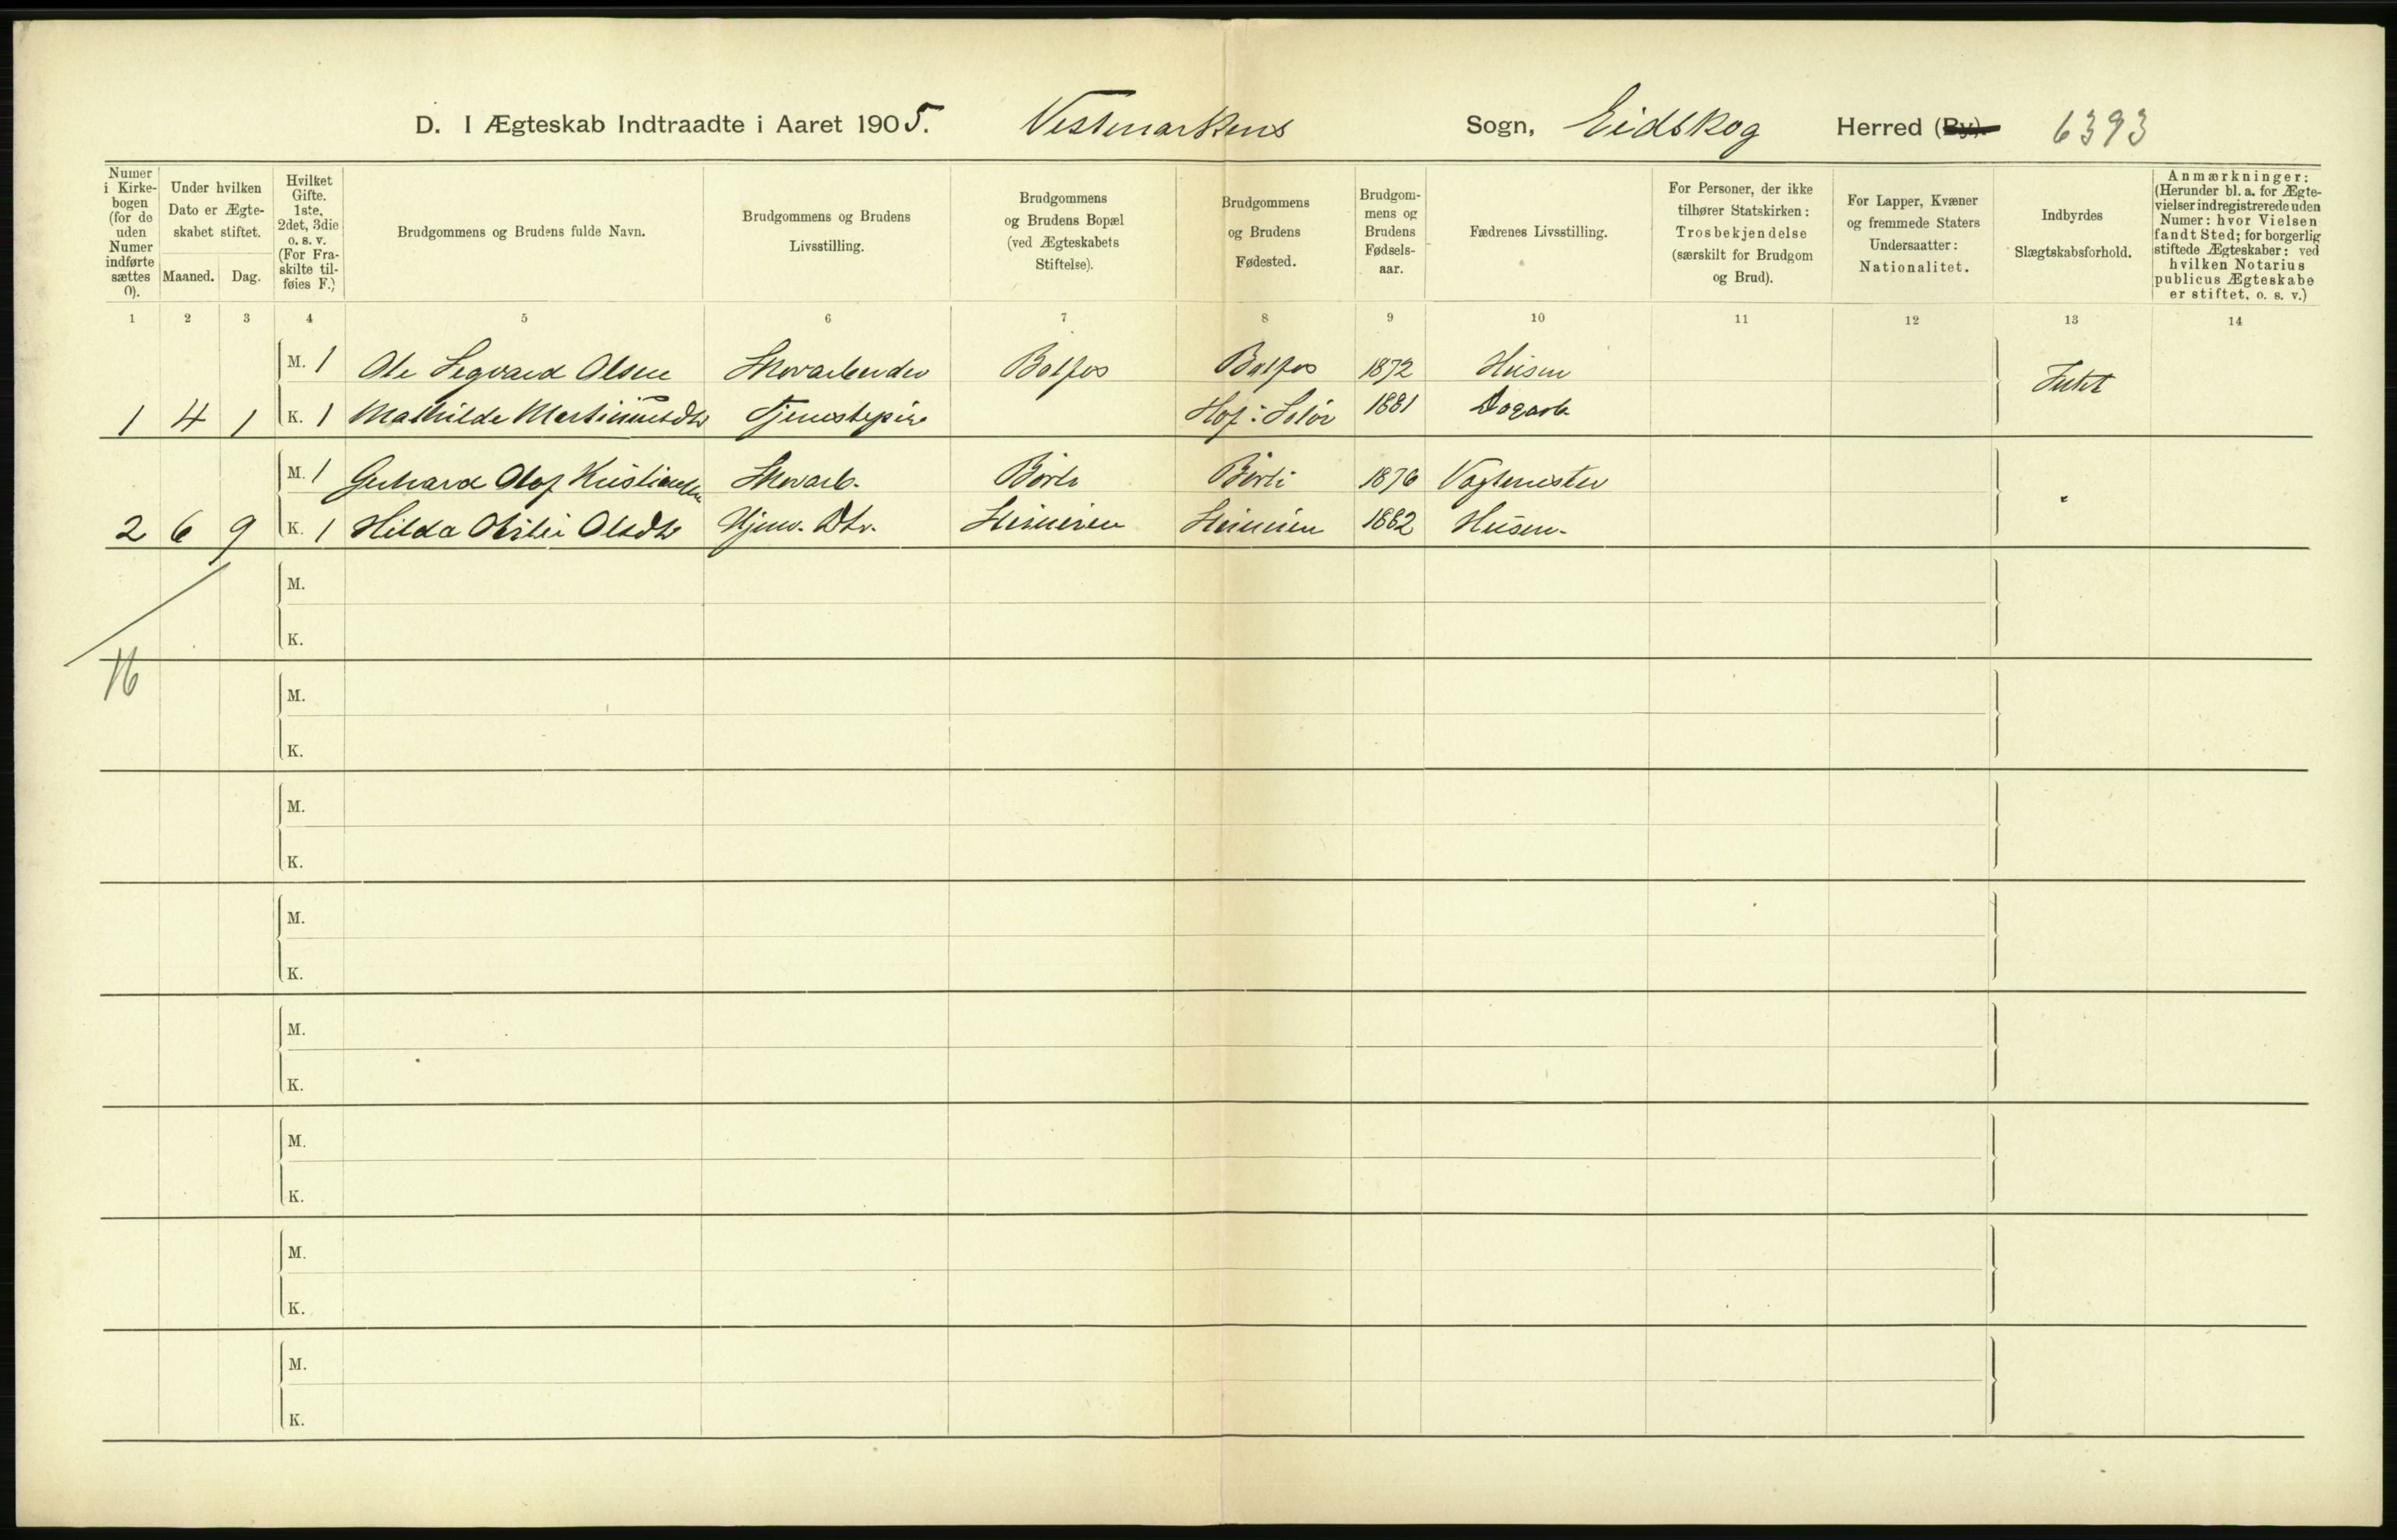 D. I Ægteskab Indtraadte i Aaret 1905. Vestmarkens Sogn, Eidskog Herred (By). 6393
Numer i Kirkebogen (for de uden Numer indførte sættes 0).
Under hvilken Dato er Ægteskabet stiftet.
Maaned. Dag.
Hvilket Gifte. 1ste, 2det, 3die o. s. v. (For Fraskilte tilføies F.)
Brudgommens og Brudens fulde Navn.
Brudgommens og Brudens Livsstilling.
Brudgommens og Brudens Bopæl (ved Ægteskabets Stiftelse).
Brudgommens og Brudens Fødested.
Brudgommens og Brudens Fødselsaar.
Fædrenes Livsstilling.
For Personer, der ikke tilhører Statskirken: Trosbekjendelse (særskilt for Brudgom og Brud).
For Lapper, Kvæner og fremmede Staters Undersaatter: Nationalitet.
Indbyrdes Slægtskabsforhold.
Anmærkninger: (Herunder bl. a. for Ægtevielser indregistrerede uden Numer: hvor Vielsen fandt Sted; for borgerlig stiftede Ægteskaber: ved hvilken Notarius publicus Ægteskabe er stiftet. o. s. v.)
1 2 3 4 5 6 7 8 9 10 11 12 13 14
M. 1 Ole Segvard Olsen Skovarbeider Balfos Balfos 1872 Husm Intet
1 4 1 K. 1 Mathilde Martinusdtr Tjenestepige Hof i Solør 1881 Dagarb.
M. 1 Gerhard Olaf Kristiansen Skovarb. Børli Børli 1876 Vagtmester "
2 6 9 K. 1 Hilda Olsdtr Hjemv. Dtr. 1882 Husm.
M.
K.
16
M.
K.
M.
K.
M.
K.
M.
K.
M.
K.
M.
K.
M.
K.